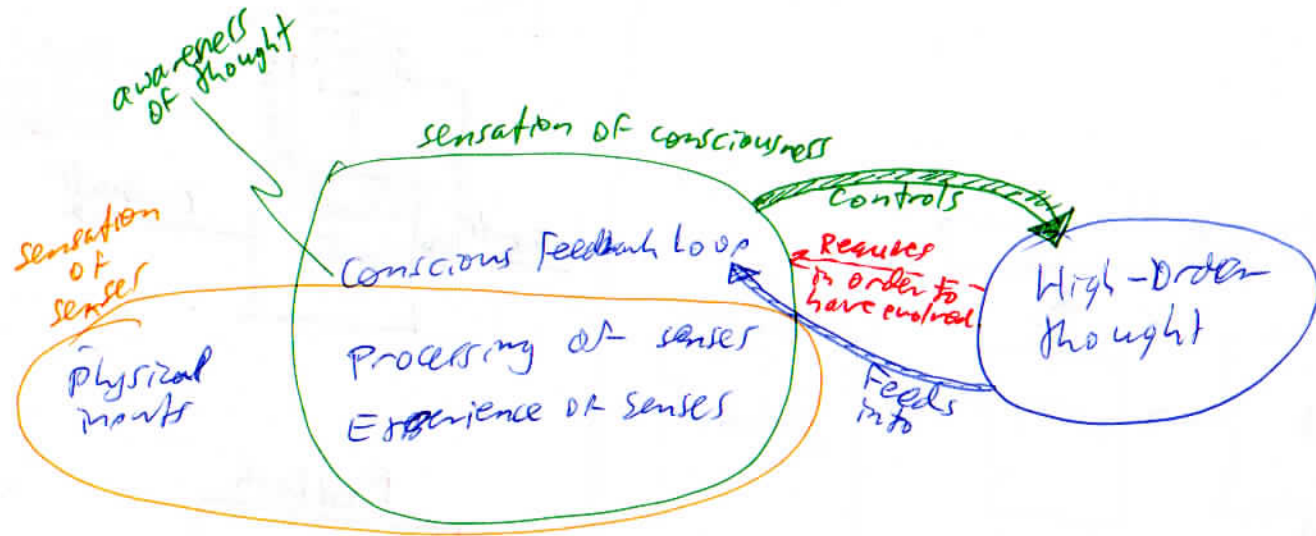 awareness
of thought
sensation of consciousness
controls
sensation
of
senses
Conscious Feedback Loop
Requires
in order to
have evolved
High-Order
thought
Physical
inputs
Processing of senses
Experience of senses
Feeds
into